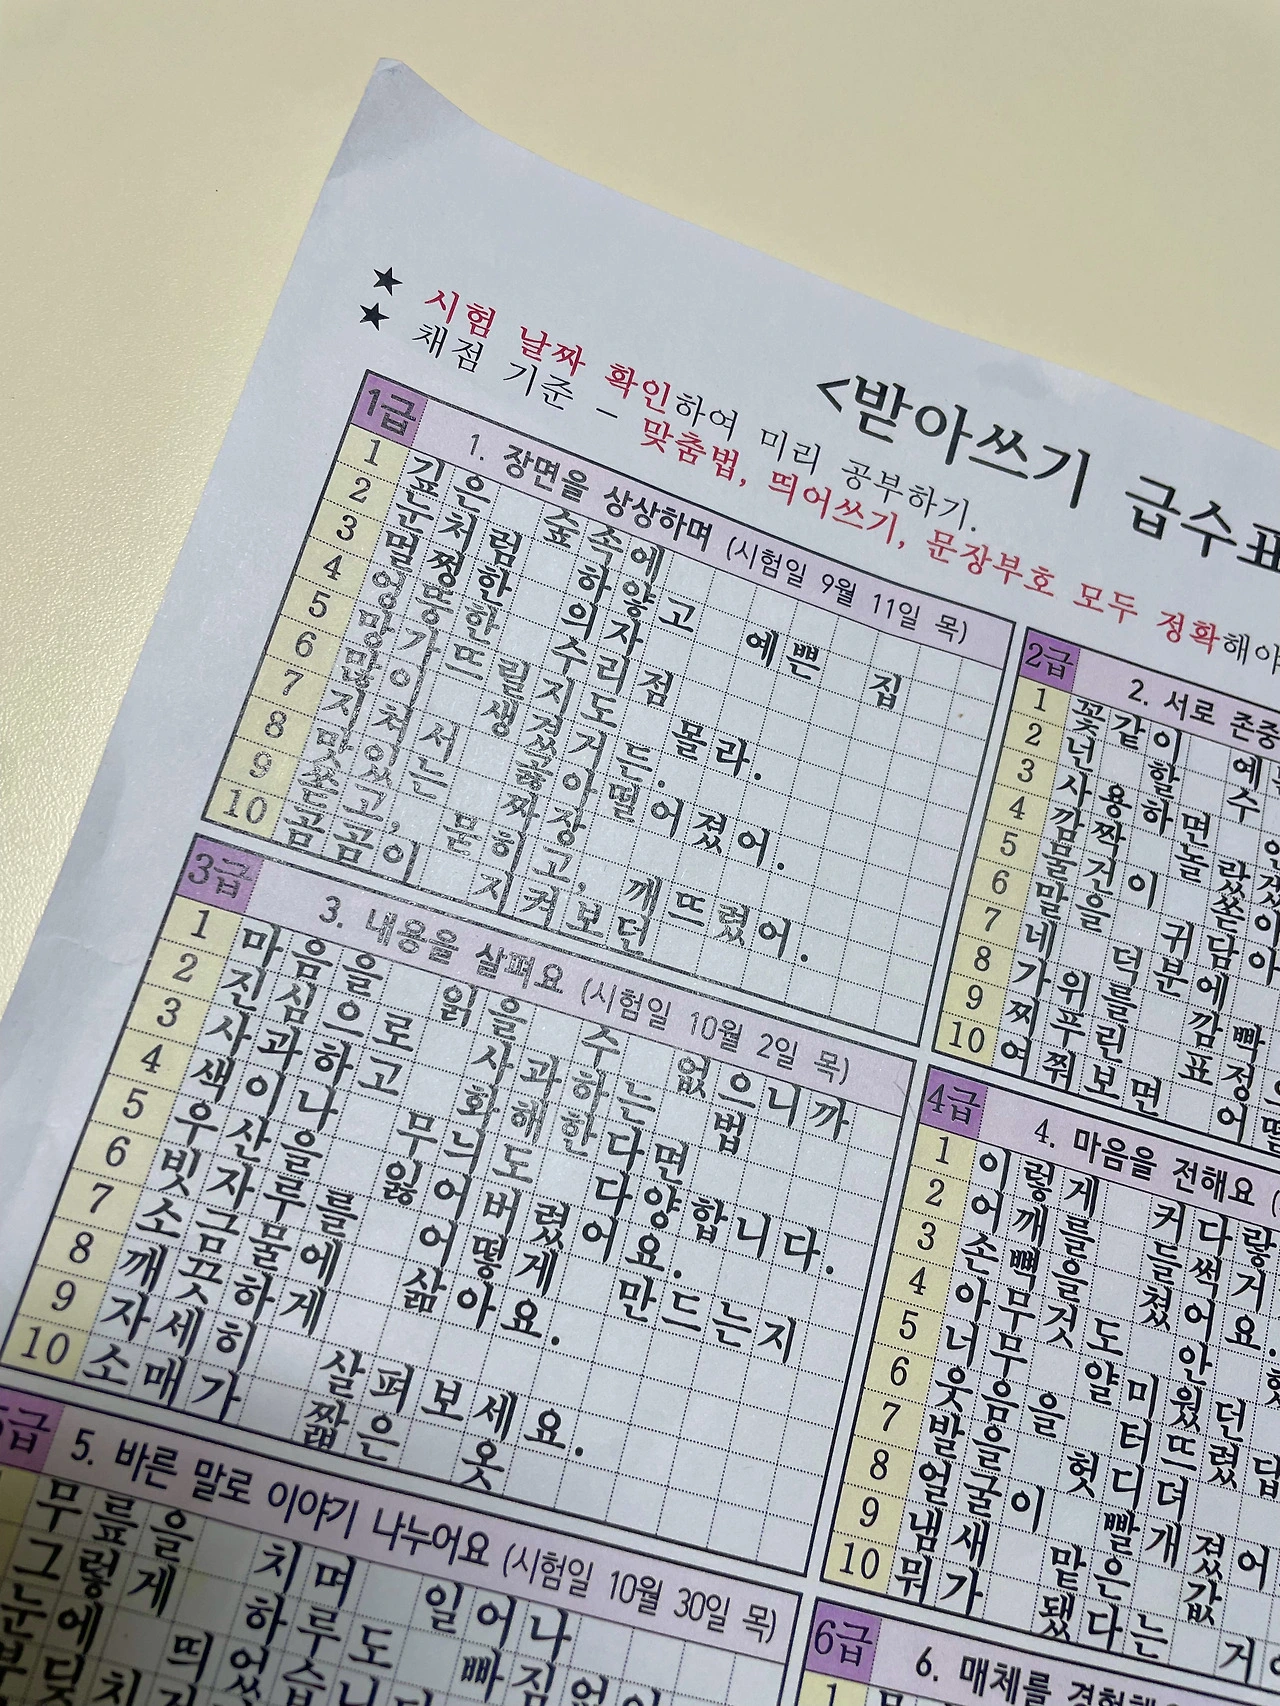 <받아쓰기 급수표
★ 시험 날짜 확인하여 미리 공부하기.
★ 채점 기준 - 맞춤법, 띄어쓰기, 문장부호 모두 정확해야
1급 1. 장면을 상상하며 (시험일 9월 11일 목)
1 깊은 숲속에
2 눈처럼 하얗고 예쁜 집
3 멀쩡한 의자
4 엉뚱한 수리점
5 망가뜨릴지도 몰라.
6 많이 생겼거든.
7 지쳐서 곯아떨어졌어.
8 맛있는 짜장
9 쏟고, 묻히고, 깨뜨렸어.
10 곰곰이 지켜보던
2급 2. 서로 존중
1 꽃같이 예
2 넌 할 수
3 사용하면
4 깜짝 놀랐
5 물건이 쏟아
6 말을 귀담아
7 네 덕분에
8 가위를 깜빡
9 찌푸린 표정
10 여쭤보면 어떨
3급 3. 내용을 살펴요 (시험일 10월 2일 목)
1 마음을 읽을 수 없으니까
2 진심으로 사과하는 법
3 사과하고 화해한다면
4 색이나 무늬도 다양합니다.
5 우산을 잃어버렸어요.
6 빗자루를 어떻게 만드는지
7 소금물에 삶아요.
8 깨끗하게
9 자세히 살펴보세요.
10 소매가 짧은 옷
4급 4. 마음을 전해요 (
1 이렇게 커다랗
2 어깨를 들썩거
3 손뼉을 쳤어요.
4 아무것도 안
5 너무 얄미웠던
6 웃음을 터뜨렸답
7 발을 헛디뎌
8 얼굴이 빨개졌어
9 냄새 맡은 값
10 뭐가 됐다는 거
5급 5. 바른 말로 이야기 나누어요 (시험일 10월 30일 목)
무릎을 치며 일어나
그렇게 하루도 빠짐없이
눈에 띄었습니다
6급 6. 매체를 경험해
1